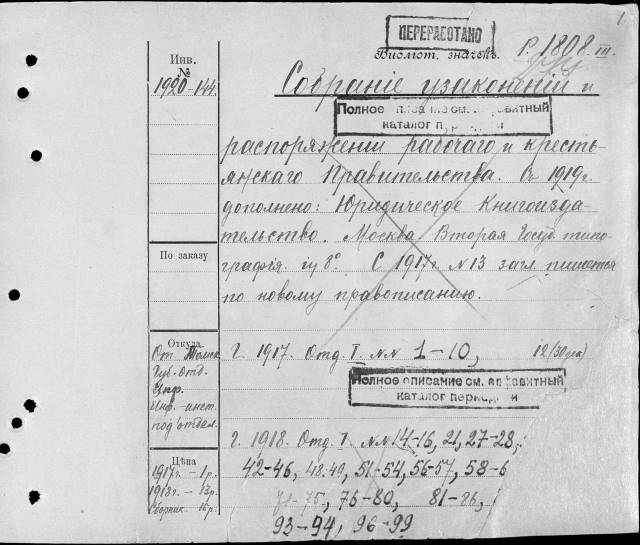 1
ПЕРЕРАБОТАНО
Библіот. значекъ.
Р. 1808. III.
Инв.
№
1920-144.
Собраніе узаконеній и
Полное описание см. алфавитный
каталог
распоряженій рабочаго и кресть-
янскаго Правительства. Съ 1919г.
дополнено: Юридическое Книгоизда-
тельство. Москва Вторая Госуд. типо-
графія. 8° С 1917г. N 13 загл. пишется
по новому правописанию.
По заказу
Откуда
От. Томск.
Губ. отд.
Инф.
Инф.-инст.
подъотдел.
Г. 1917. Отд. I. NN 1-10,
Полное описание см. алфавитный
каталог
Г. 1918. Отд. I. NN 14-16, 21, 27-28,
42-46, 48-49, 51-54, 56-57, 58-6
75, 76-80, 81-86,
93-94, 96-99
Цѣна
1917г. - 1р.
1918г. - 13р.
Сборник -